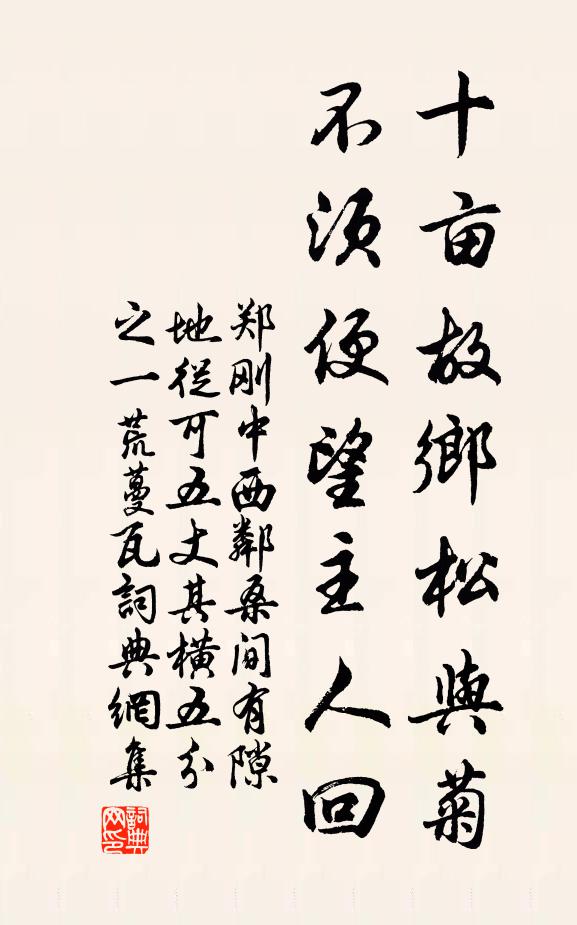 十亩故鄉松與菊
不須便望主人回
郑刚中西鄰桑间有隙
地從可五丈其横五分
之一荒蔓瓦詞典網集
詞典
网印